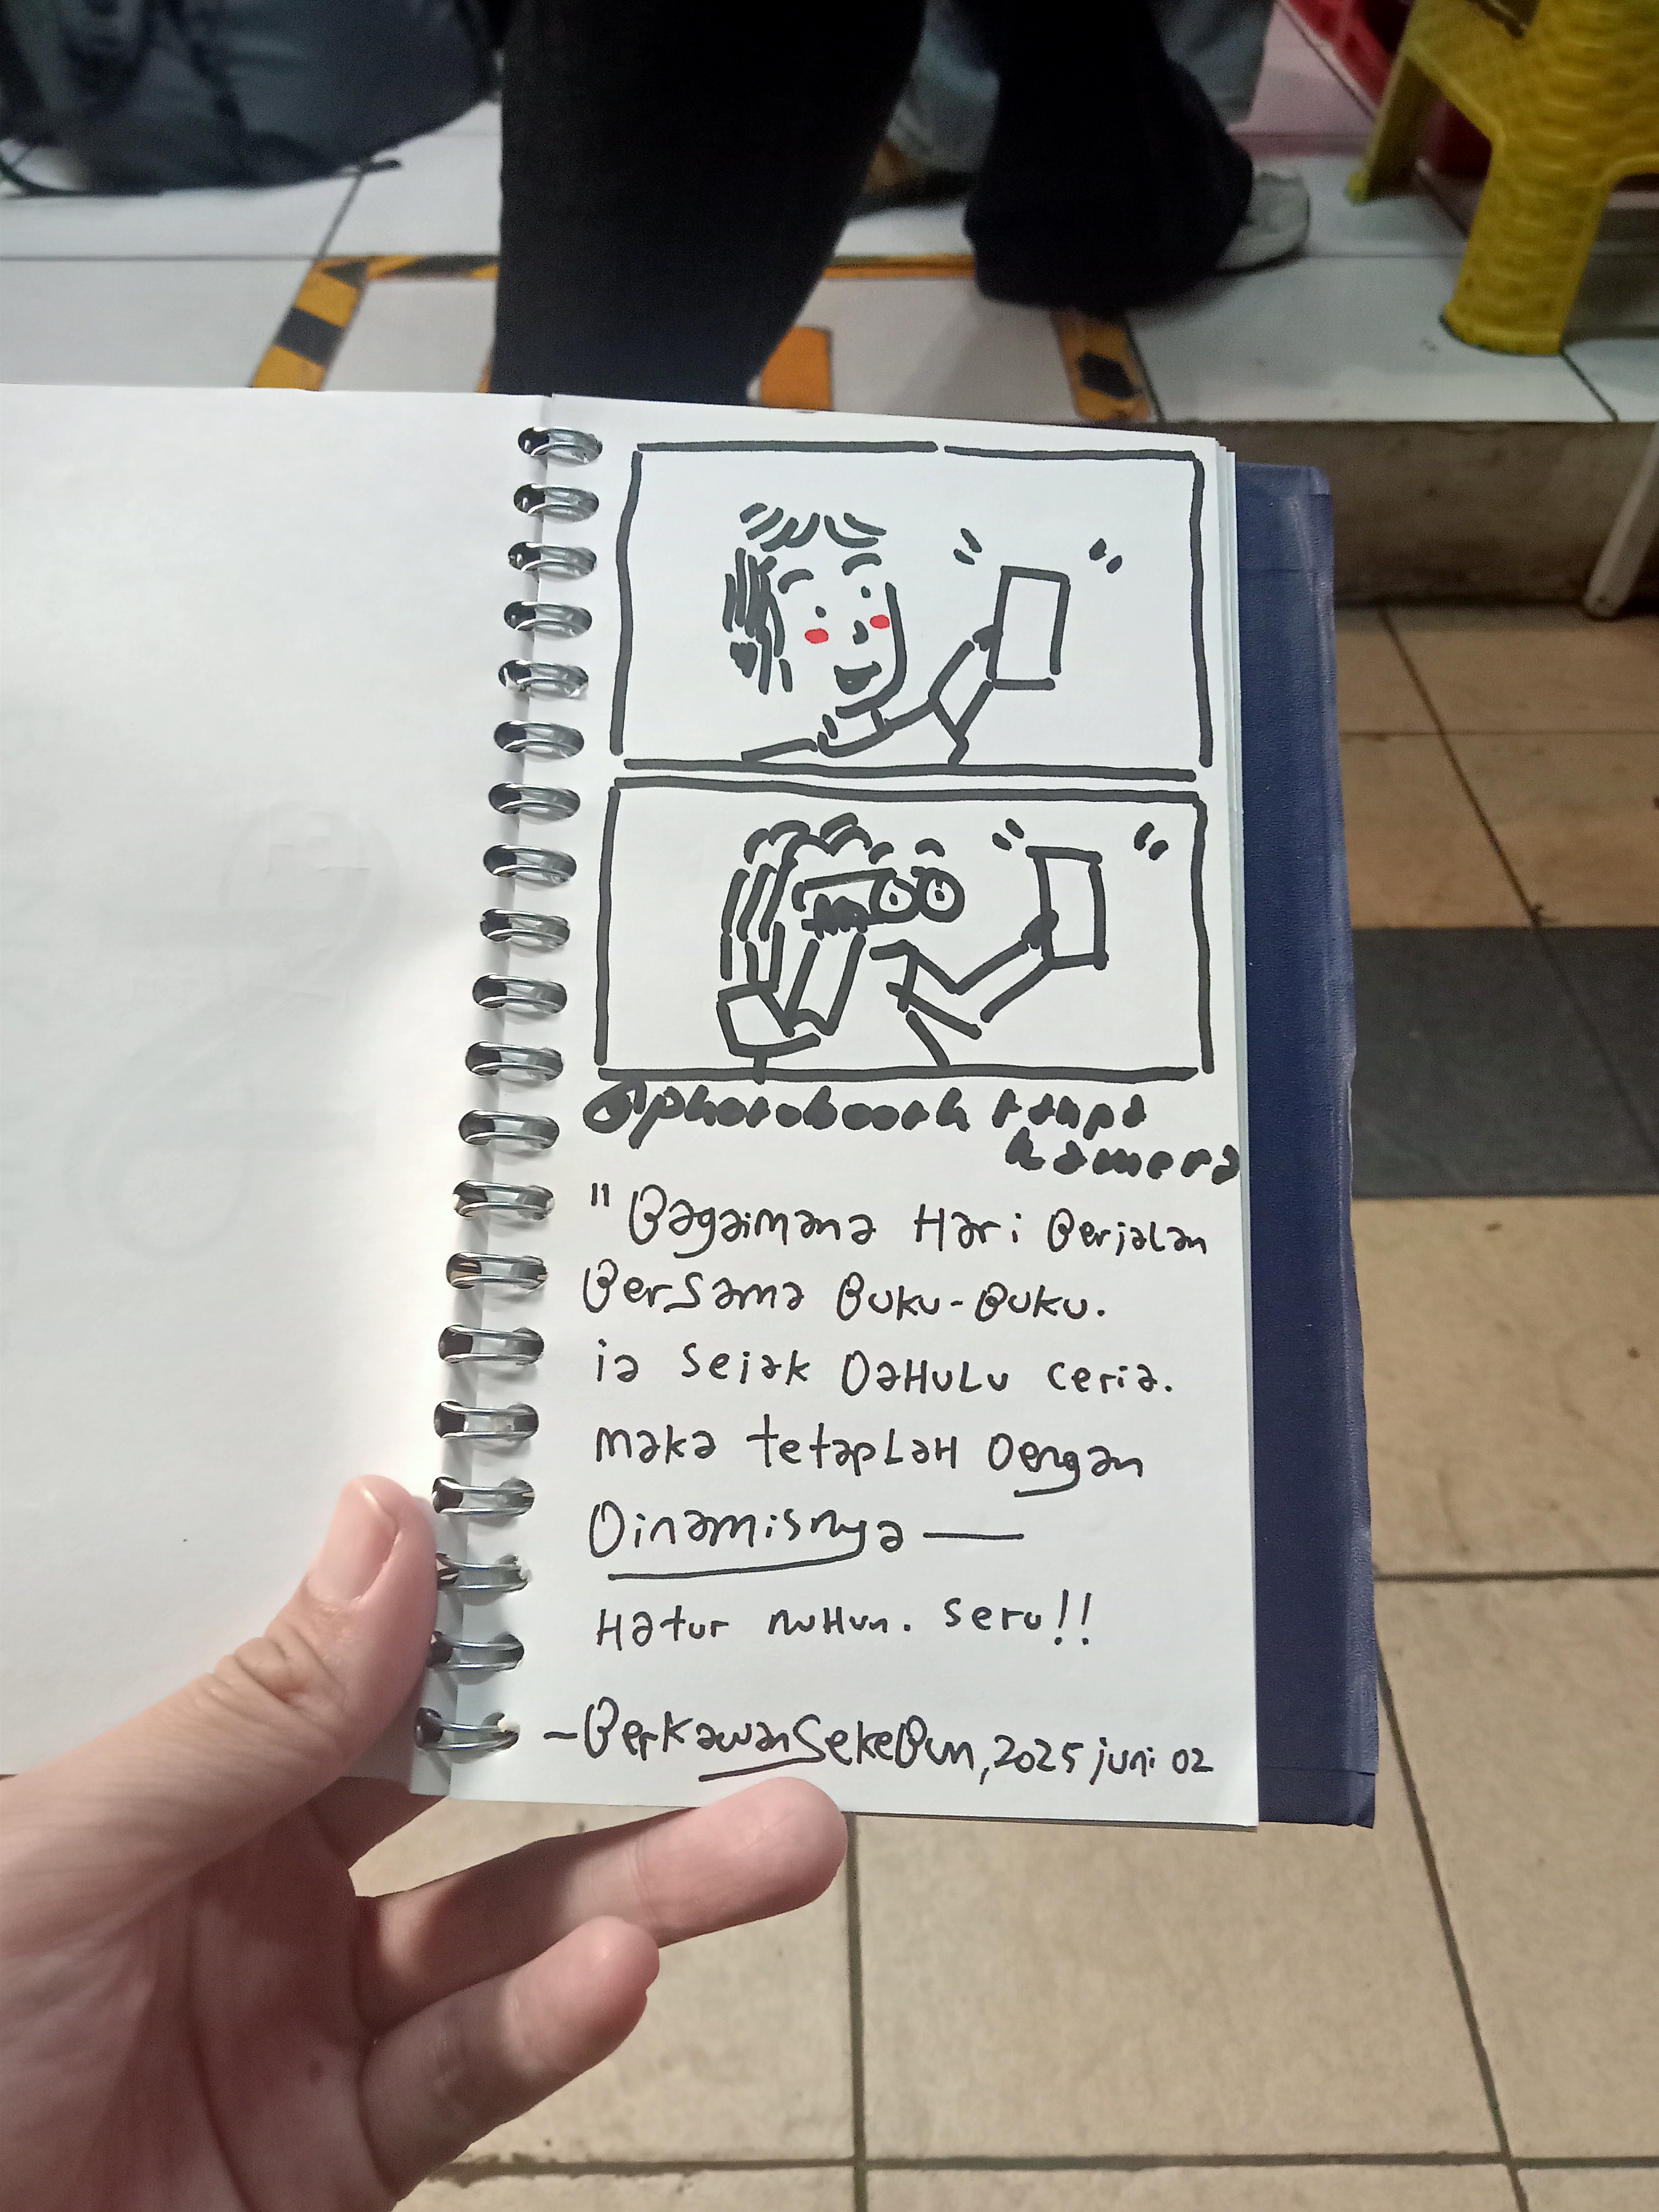 @photobooth tanpa
kamera
"Bagaimana Hari Berjalan
Bersama Buku-Buku.
ia sejak DaHuLu ceria.
maka tetapLaH Dengan
Dinamisnya —
Hatur nuHun. seru!!
~BerKawanSekeBun, 2025 juni 02